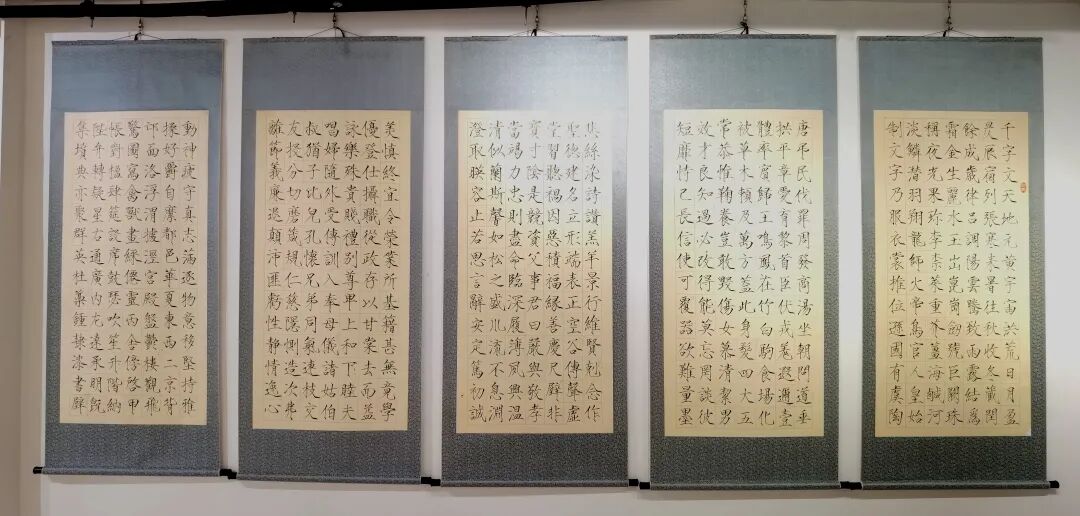 千字文天地元黄宇宙洪荒日月盈
昃辰宿列張寒來暑往秋收冬藏閏
餘成歲律吕調陽雲騰致雨露結爲
霜金生麗水玉出崑岡劍號巨闕珠
稱夜光果珍李柰菜重芥薑海鹹河
淡鱗潛羽翔龍師火帝鳥官人皇始
制文字乃服衣裳推位遜國有虞陶
唐弔民伐罪周發商湯坐朝問道垂
拱平章愛育黎首臣伏戎羌遐邇壹
體率賓歸王鳴鳳在竹白駒食場化
被草木賴及萬方蓋此身髮四大五
常恭惟鞠養豈敢毀傷女慕清絜男
效才良知過必改得能莫忘罔談彼
短靡恃己長信使可覆器欲難量墨
悲絲染詩讚羔羊景行維賢剋念作
聖德建名立形端表正空谷傳聲虛
堂習聽禍因惡積福緣善慶尺璧非
寶寸陰是競資父事君曰嚴與敬孝
當竭力忠則盡命臨深履薄夙興溫
清似蘭斯馨如松之盛川流不息淵
澄取映容止若思言辭安定篤初誠
美慎終宜令榮業所基籍甚無竟學
優登仕攝職從政存以甘棠去而益
詠樂殊貴賤禮別尊卑上和下睦夫
唱婦隨外受傅訓入奉母儀諸姑伯
叔猶子比兒孔懷兄弟同氣連枝交
友投分切磨箴規仁慈隱惻造次弗
離節義廉退顛沛匪虧性靜情逸心
動神疲守真志滿逐物意移堅持雅
操好爵自縻都邑華夏東西二京背
邙面洛浮渭據涇宮殿盤鬱樓觀飛
驚圖寫禽獸畫綵僊靈丙舍傍啓甲
帳對楹肆筵設席鼓瑟吹笙升階納
陛弁轉疑星右通廣內左達承明既
集墳典亦聚群英杜稾鍾隸漆書壁